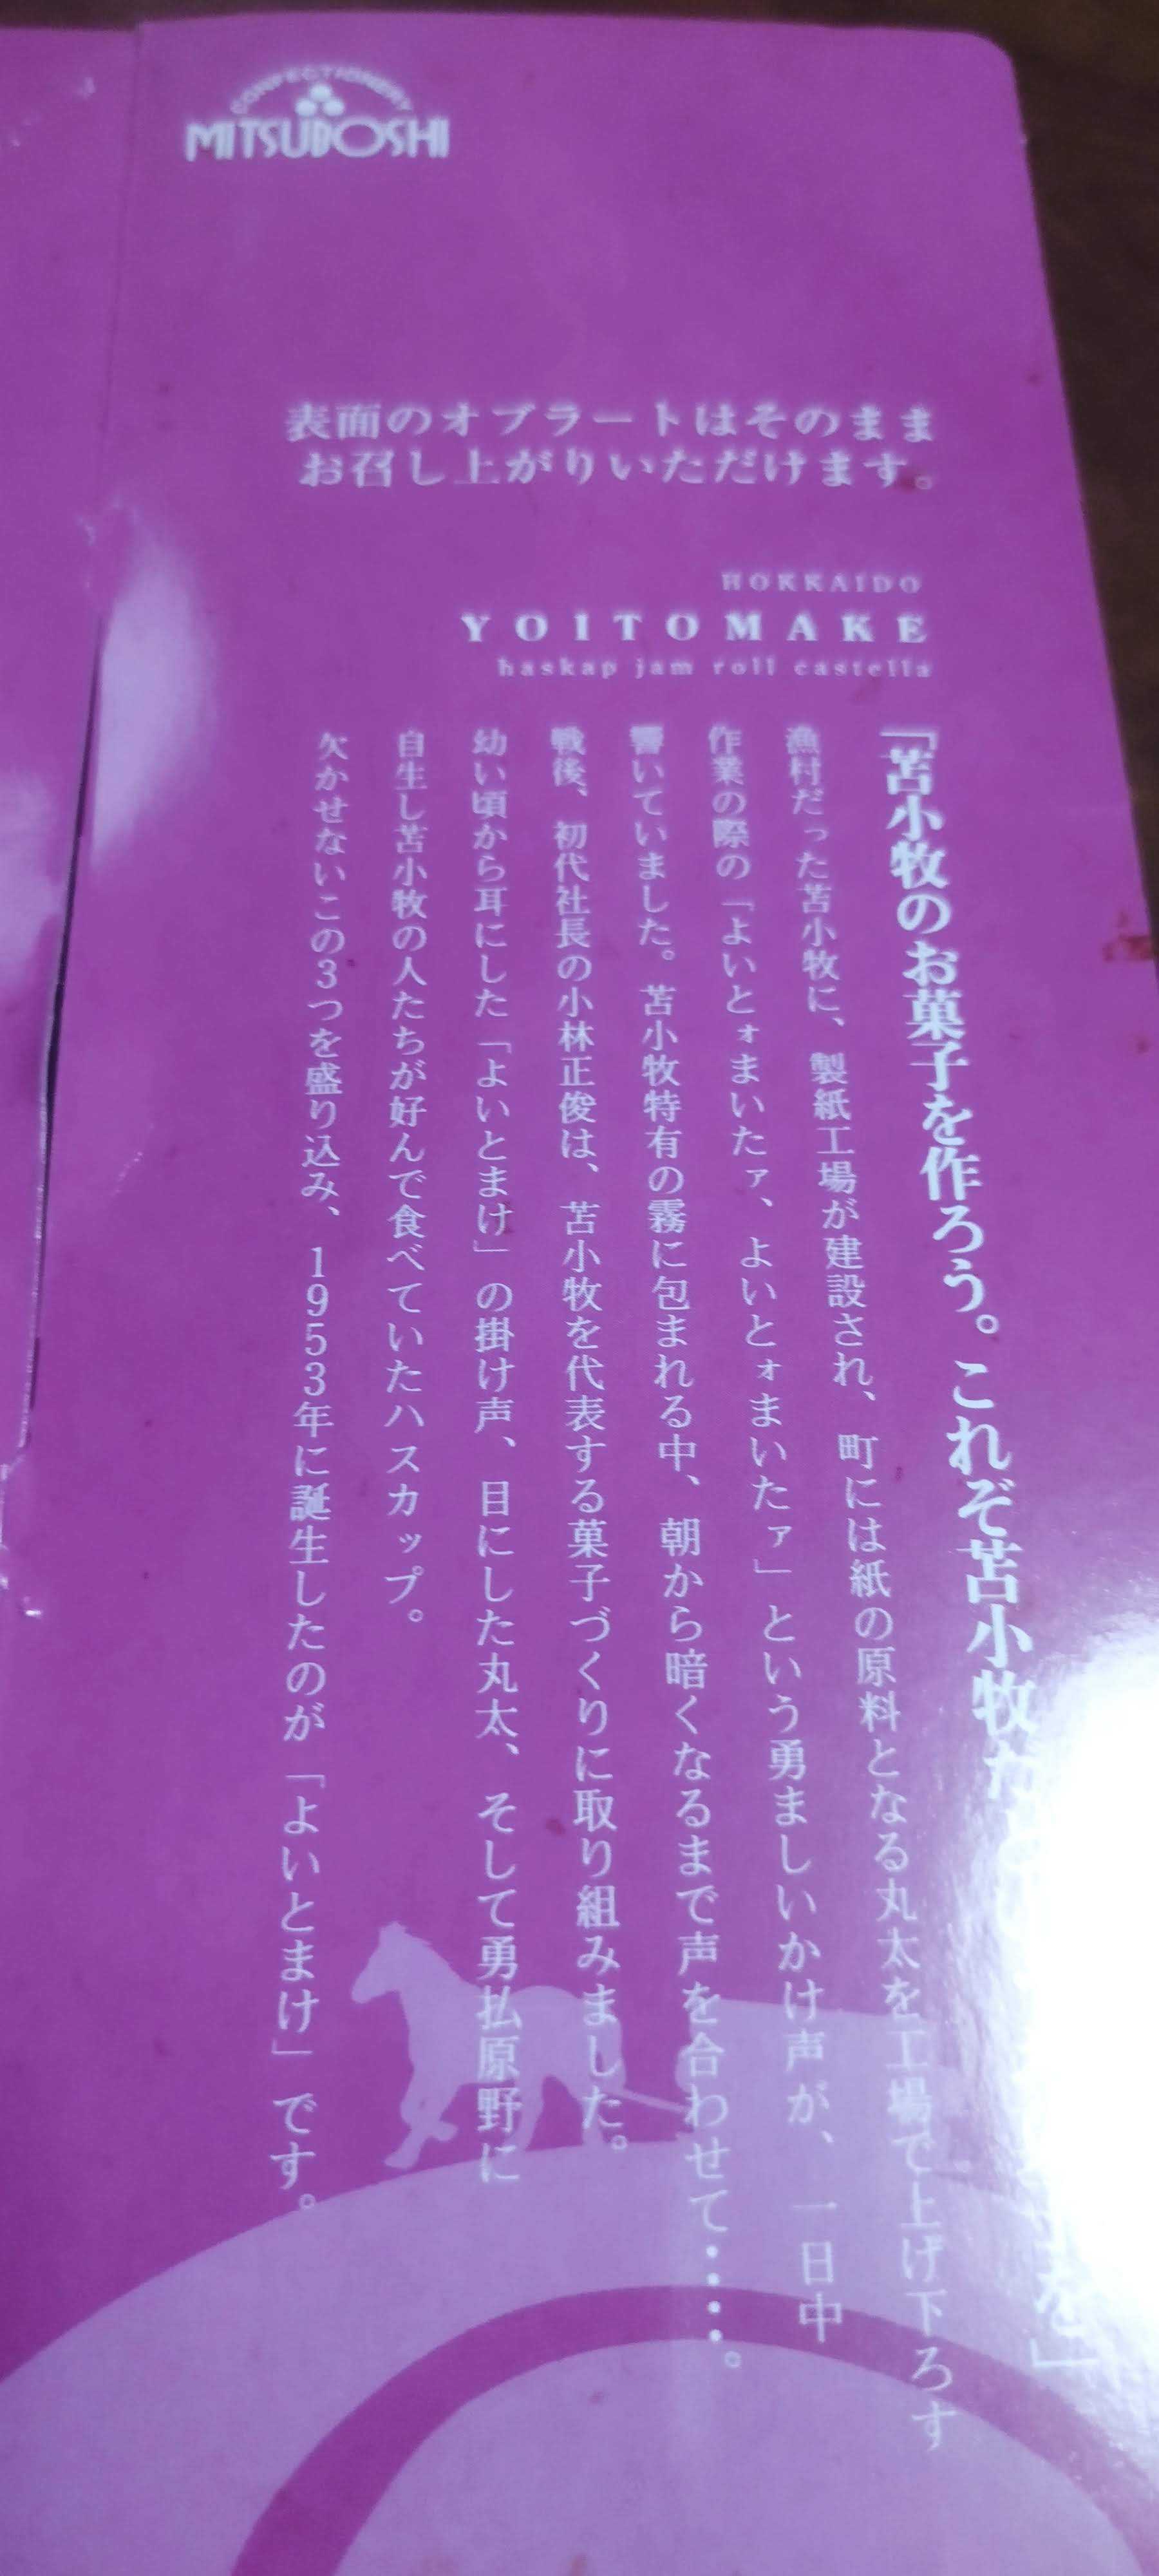 CONFECTIONERY
MITSUBOSHI
表面のオブラートはそのまま
お召し上がりいただけます。
HOKKAIDO
YOITOMAKE
haskap jam roll castella
「苫小牧のお菓子を作ろう。これぞ苫小牧だ を」
漁村だった苫小牧に、製紙工場が建設され、町には紙の原料となる丸太を工場で上げ下ろす
作業の際の「よいとォまいたァ、よいとォまいたァ」という勇ましいかけ声が、一日中
響いていました。苫小牧特有の霧に包まれる中、朝から暗くなるまで声を合わせて・・・・。
戦後、初代社長の小林正俊は、苫小牧を代表する菓子づくりに取り組みました。
幼い頃から耳にした「よいとまけ」の掛け声、目にした丸太、そして勇払原野に
自生し苫小牧の人たちが好んで食べていたハスカップ。
欠かせないこの3つを盛り込み、1953年に誕生したのが「よいとまけ」です。